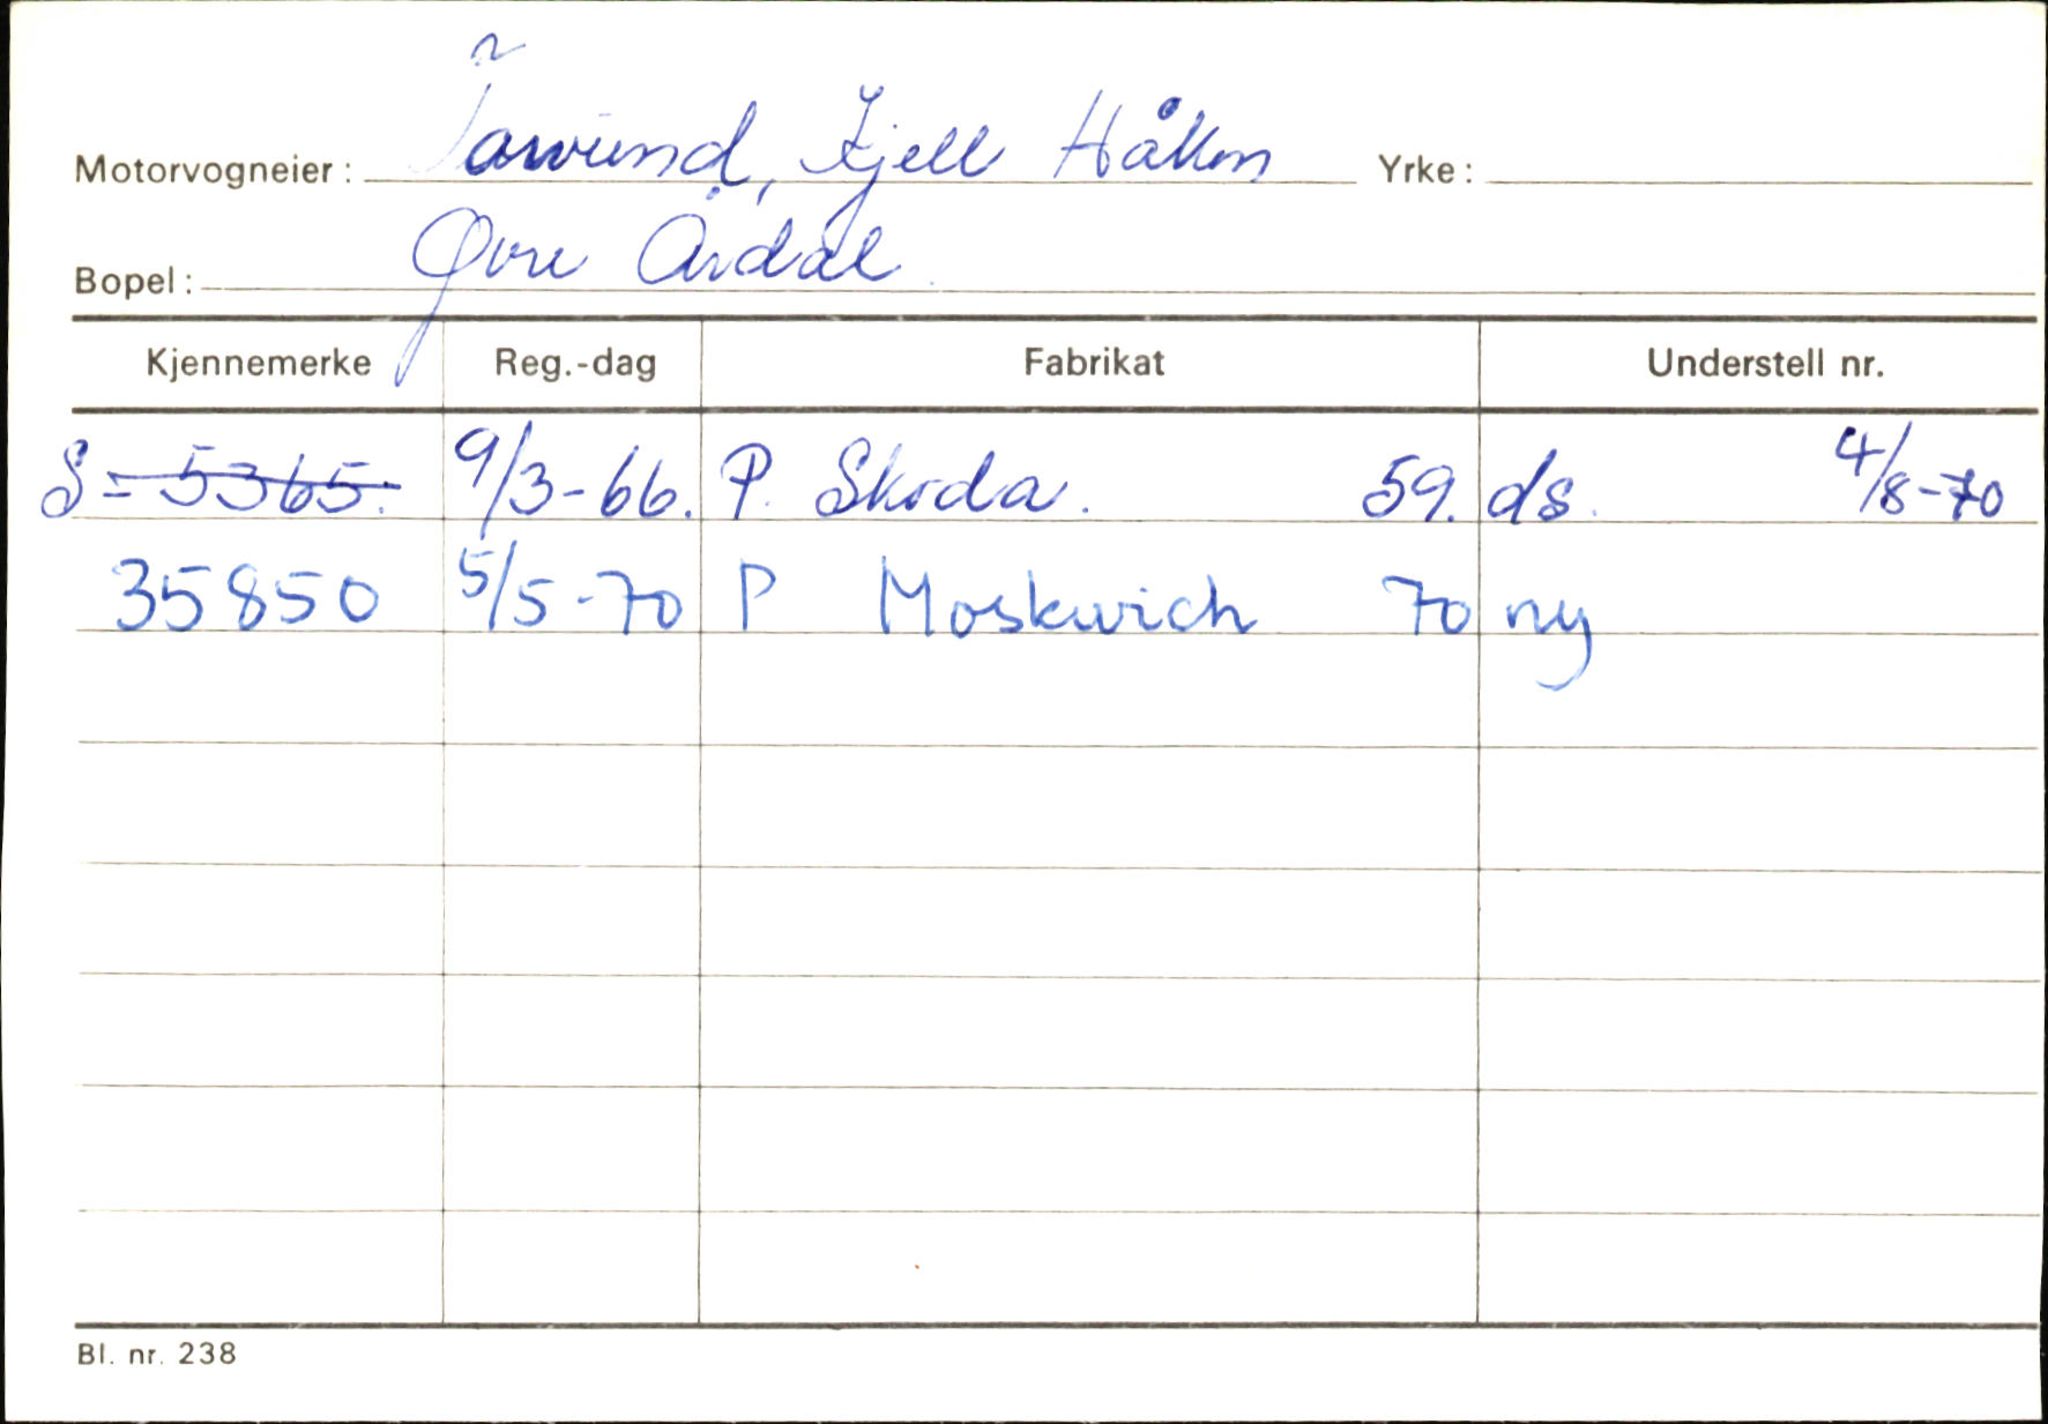 Motorvogneier: Tarvund, Kjell Håkon Yrke:
Bopel: Øvre Årdal
Kjennemerke Reg.-dag Fabrikat Understell nr.
S-5365. 9/3-66. P. Skoda. 59. ds. 4/8-70
35850 5/5-70 P Moskwich 70 ny
Bl. nr. 238